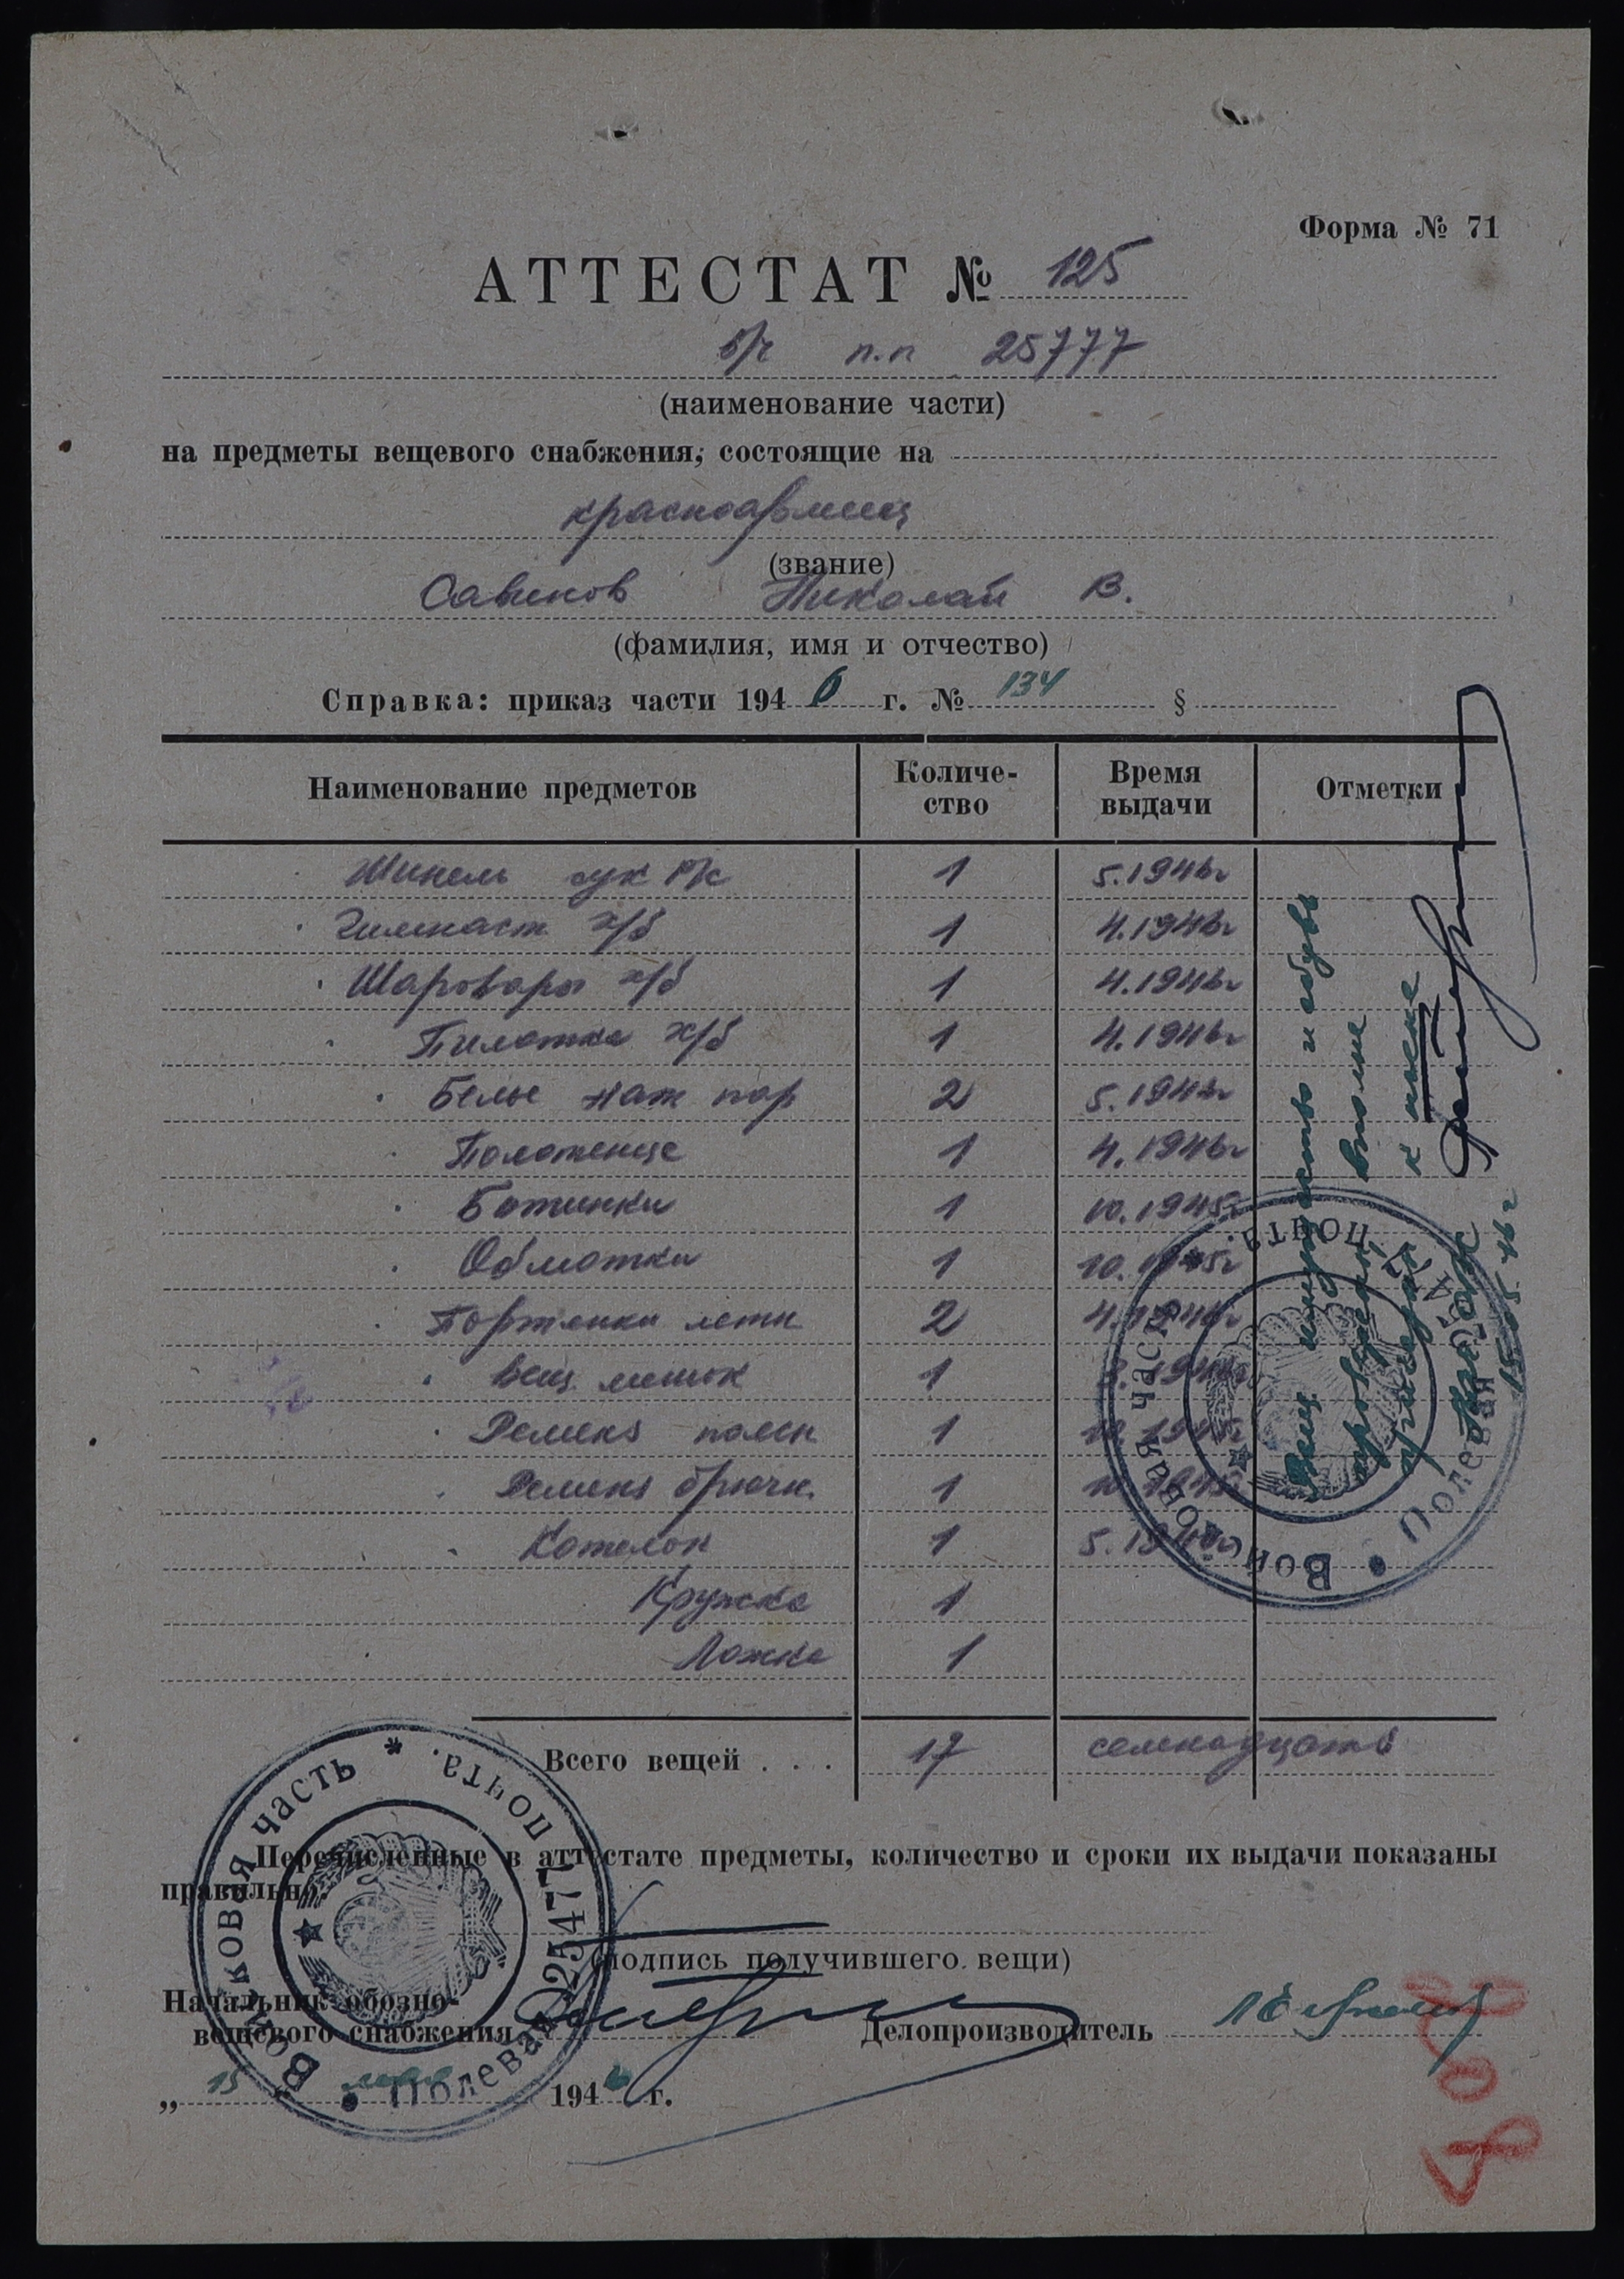 Форма № 71
АТТЕСТАТ № 125
в/ч п.п 25777
(наименование части)
на предметы вещевого снабжения, состоящие на
красноармеец
(звание)
Савинов Николай В.
(фамилия, имя и отчество)
Справка: приказ части 1946 г. № 134 §
Наименование предметов Количе- Время Отметки
ство выдачи
Шинель сук Р/с 1 5.1946г
Гимнаст х/б 1 4.1946г
Шаровары х/б 1 4.1946г
Пилотка х/б 1 4.1946г
Белье нат пар 2 5.1946г
Полотенце 1 4.1946г
Ботинки 1 10.1945г
Обмотки 1 10.1945г
Портянки летн 2 4.1946г
Вещ. мешок 1
Ремень поясн 1
Ремень брючн. 1
Котелок 1 5.1946г
Кружка 1
Ложка 1
Всего вещей . . . 17 семнадцать
Вещ имущество и обувь
вполне
к носке
15.05.46г
Войсковая часть
Полевая почта
Перечисленные в аттестате предметы, количество и сроки их выдачи показаны
правильно.
(подпись получившего вещи)
Начальник обозно-
вещевого снабжения
Делопроизводитель
„15 мая 1946 г.
Войсковая часть * Полевая почта. 25477